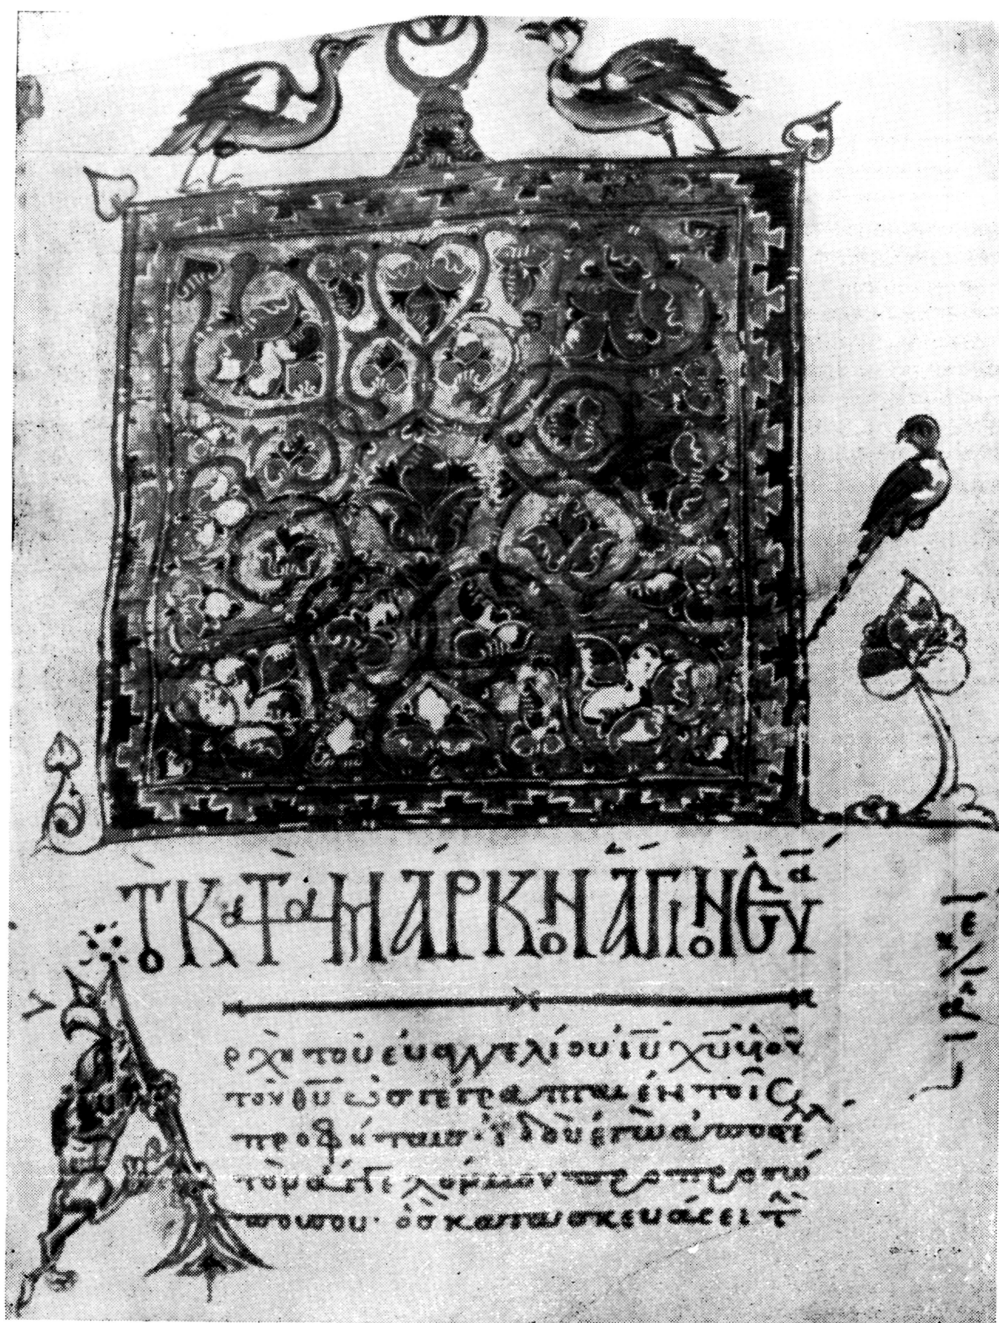 ΤὸΚατὰΜΑΡΚΟΝἍΓΙΟΝΕΥα
Ἀρχὴ τοῦ εὐαγγελίου ιῦ χῦ υἱοῦ
τοῦ θῦ ὡς γέγραπται ἐν τοῖς
προφήταις· ἰδοὺ ἐγὼ
τὸν ἄγγελόν μου πρὸ προσώ
που σου· ὃς κατασκευάσει τὴν